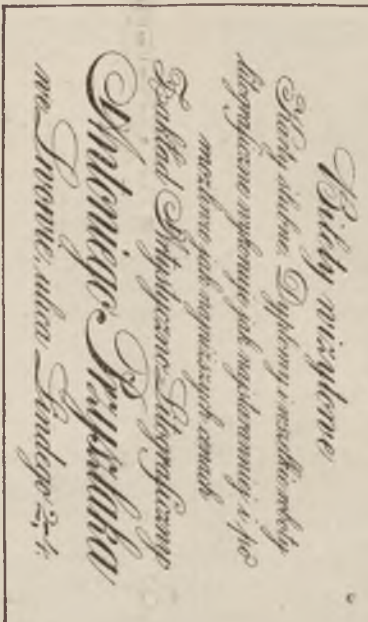 Bilety wizytowe
Karty ślubne, Dyplomy i wszelkie roboty
litograficzne wykonuje jak najstaranniej i po
możliwie jak najniższych cenach
Zakład Artystyczno-Litograficzny
Antoniego Przyszlaka
we Lwowie, ulica Lindego